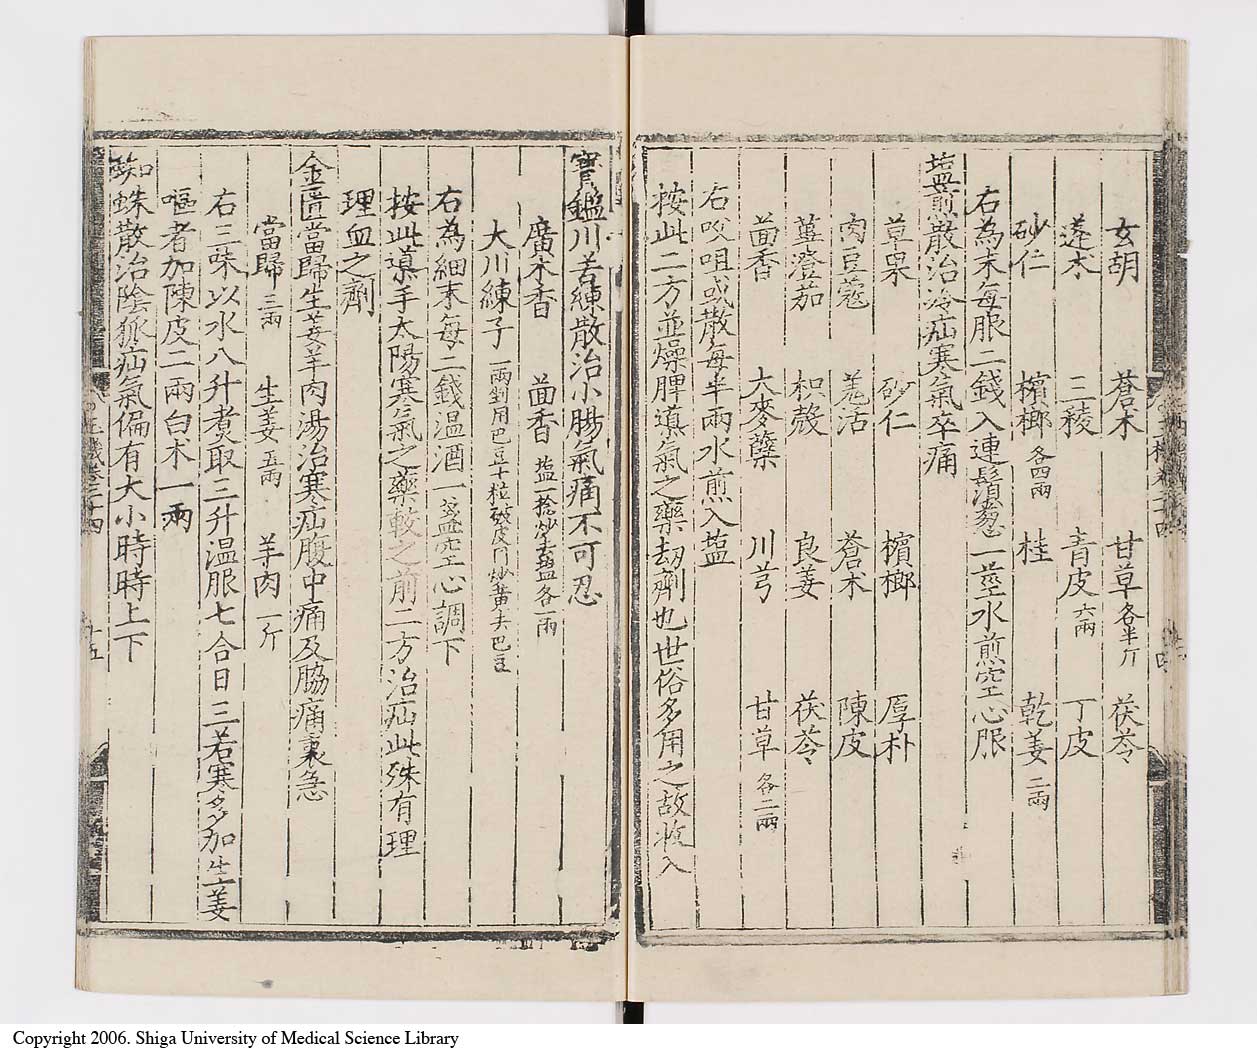 玄胡 蒼朮 甘草各半斤 茯苓
蓬朮 三稜 青皮六兩 丁皮
砂仁 檳榔各四兩 桂 乾姜二兩
右為末每服二錢入連鬚葱一莖水煎空心服
塩煎散治冷疝寒氣卒痛
草果 砂仁 檳榔 厚朴
肉豆蔻 羗活 蒼朮 陳皮
蓽澄茄 枳殼 良姜 茯苓
茴香 大麥蘖 川芎 甘草各二兩
右㕮咀或散每半兩水煎入塩
按此二方並燥脾道氣之藥劫劑也世俗多用之故收入
寳鑑川苦練散治小腸氣痛不可忍
廣木香 茴香塩一捻炒去塩各一兩
大川練子一兩剉用巴豆十粒破皮同炒黃去巴豆
右為細末每二錢温酒一盞空心調下
按此道手太陽寒氣之藥較之前二方治疝此殊有理
理血之劑
金匱當歸生姜羊肉湯治寒疝腹中痛及脇痛裏急
當歸三兩 生姜五兩 羊肉一斤
右三味以水八升煮取三升温服七合日三若寒多加生姜
嘔者加陳皮二兩白术一兩
蜘蛛散治陰狐疝氣偏有大小時時上下
十五
Copyright 2006. Shiga University of Medical Science Library